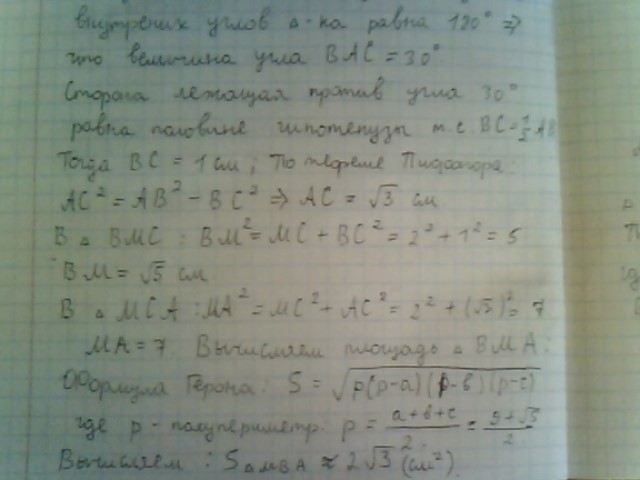 внутрених углов Δ-ка равна 180° =>
что величина угла BAC = 30°
Сторона лежащая против угла 30°
равна половине гипотенузы т.е. BC = 1/2 AB
Тогда BC = 1 см; По теореме Пифагора:
AC² = AB² - BC² => AC = √3 см
В Δ BMC : BM² = MC + BC² = 2² + 1² = 5
BM = √5 см
В Δ MCA : MA² = MC² + AC² = 2² + (√3)² = 7
MA = 7 Вычисляем площадь Δ BMA:
Формула Герона: S = √p(p-a)(p-b)(p-c)
где p - полупериметр: p = (a+b+c)/2 = (9+√5)/2
Вычисляем : S Δ MBA ≈ 2√3 (см²)